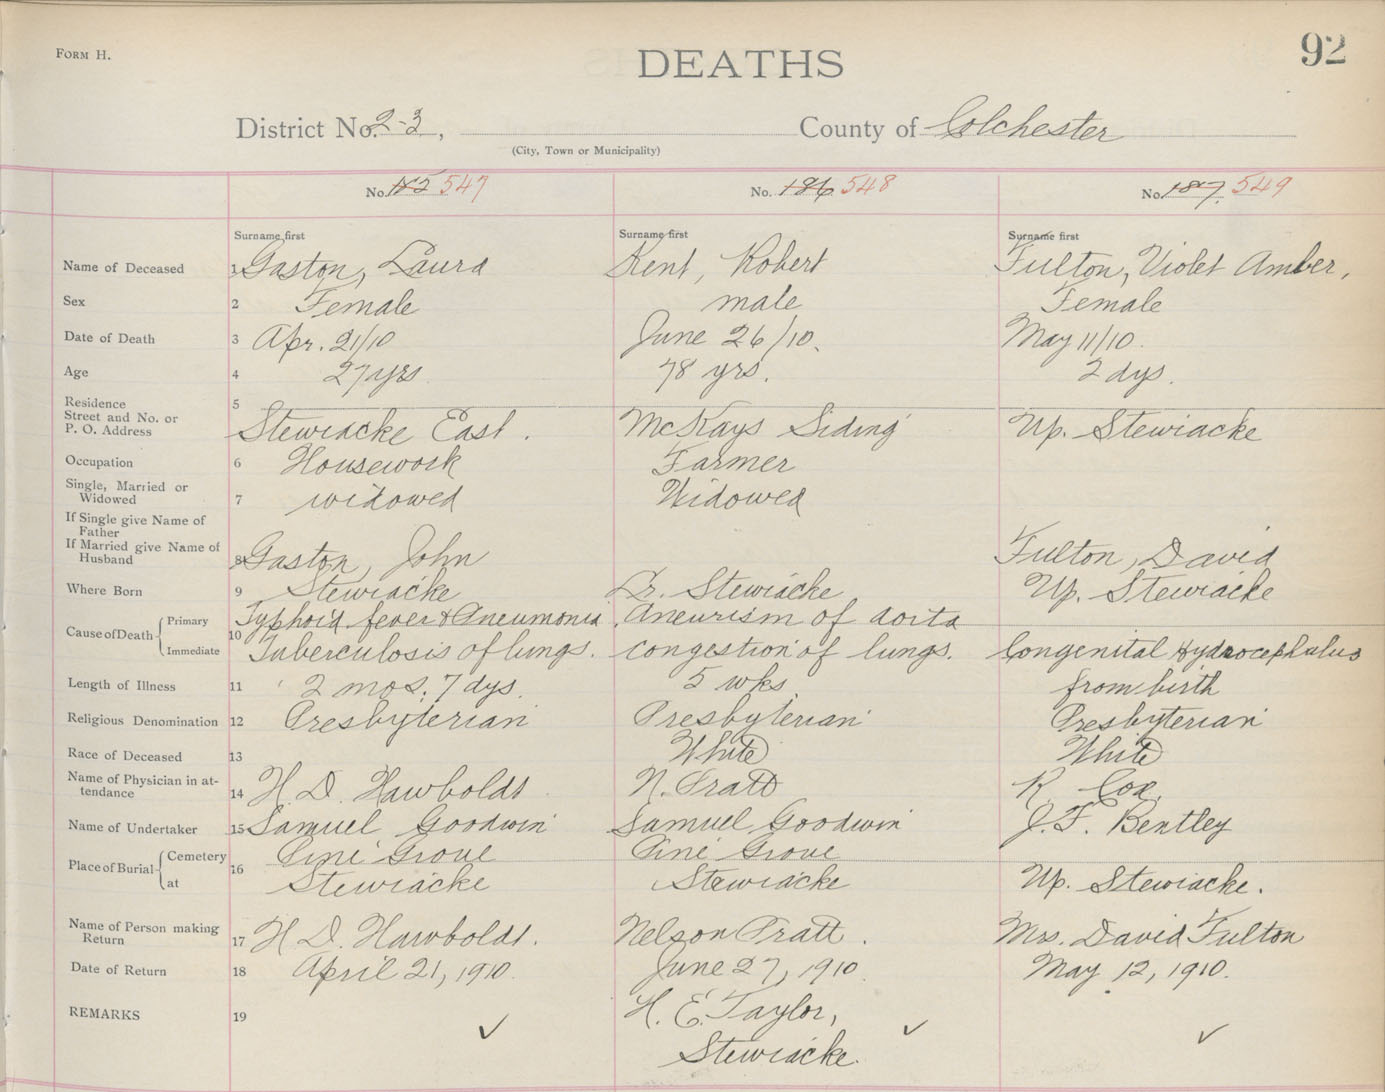 FORM H.
DEATHS
92
District No. 2-3, County of Colchester
(City, Town or Municipality)
No. 547
No. 186 548
No. 187. 549
Surname first
Surname first
Surname first
Name of Deceased 1 Gaston, Laura Kent, Robert Fulton, Violet Amber,
Sex 2 Female male Female
Date of Death 3 Apr. 21/10 June 26/10. May 11/10.
Age 4 27 yrs 78 yrs. 2 dys.
Residence 5
Street and No. or
P. O. Address Stewiacke East. McKays Siding Up. Stewiacke
Occupation 6 Housework Farmer
Single, Married or
Widowed 7 widowed Widowed
If Single give Name of
Father
If Married give Name of
Husband 8 Gaston, John Fulton, David
Where Born 9 Stewiacke Lr. Stewiacke Up. Stewiacke
Cause of Death Primary Typhoid fever & Pneumonia. Aneurism of aorta
10 Immediate Tuberculosis of lungs. congestion of lungs. Congenital Hydrocephalus
Length of Illness 11 2 mos. 7 dys. 5 wks. from birth
Religious Denomination 12 Presbyterian Presbyterian Presbyterian
Race of Deceased 13 White White
Name of Physician in at-
tendance 14 H. D. Hawboldt N. Pratt R Cox.
Name of Undertaker 15 Samuel Goodwin Samuel Goodwin J. F. Bentley
Place of Burial Cemetery Pine Grove Pine Grove
16 at Stewiacke Stewiacke Up. Stewiacke.
Name of Person making
Return 17 H D. Hawboldt. Nelson Pratt. Mrs. David Fulton
Date of Return 18 April 21, 1910. June 27, 1910. May 12, 1910.
REMARKS 19 H. E. Taylor,
Stewiacke.